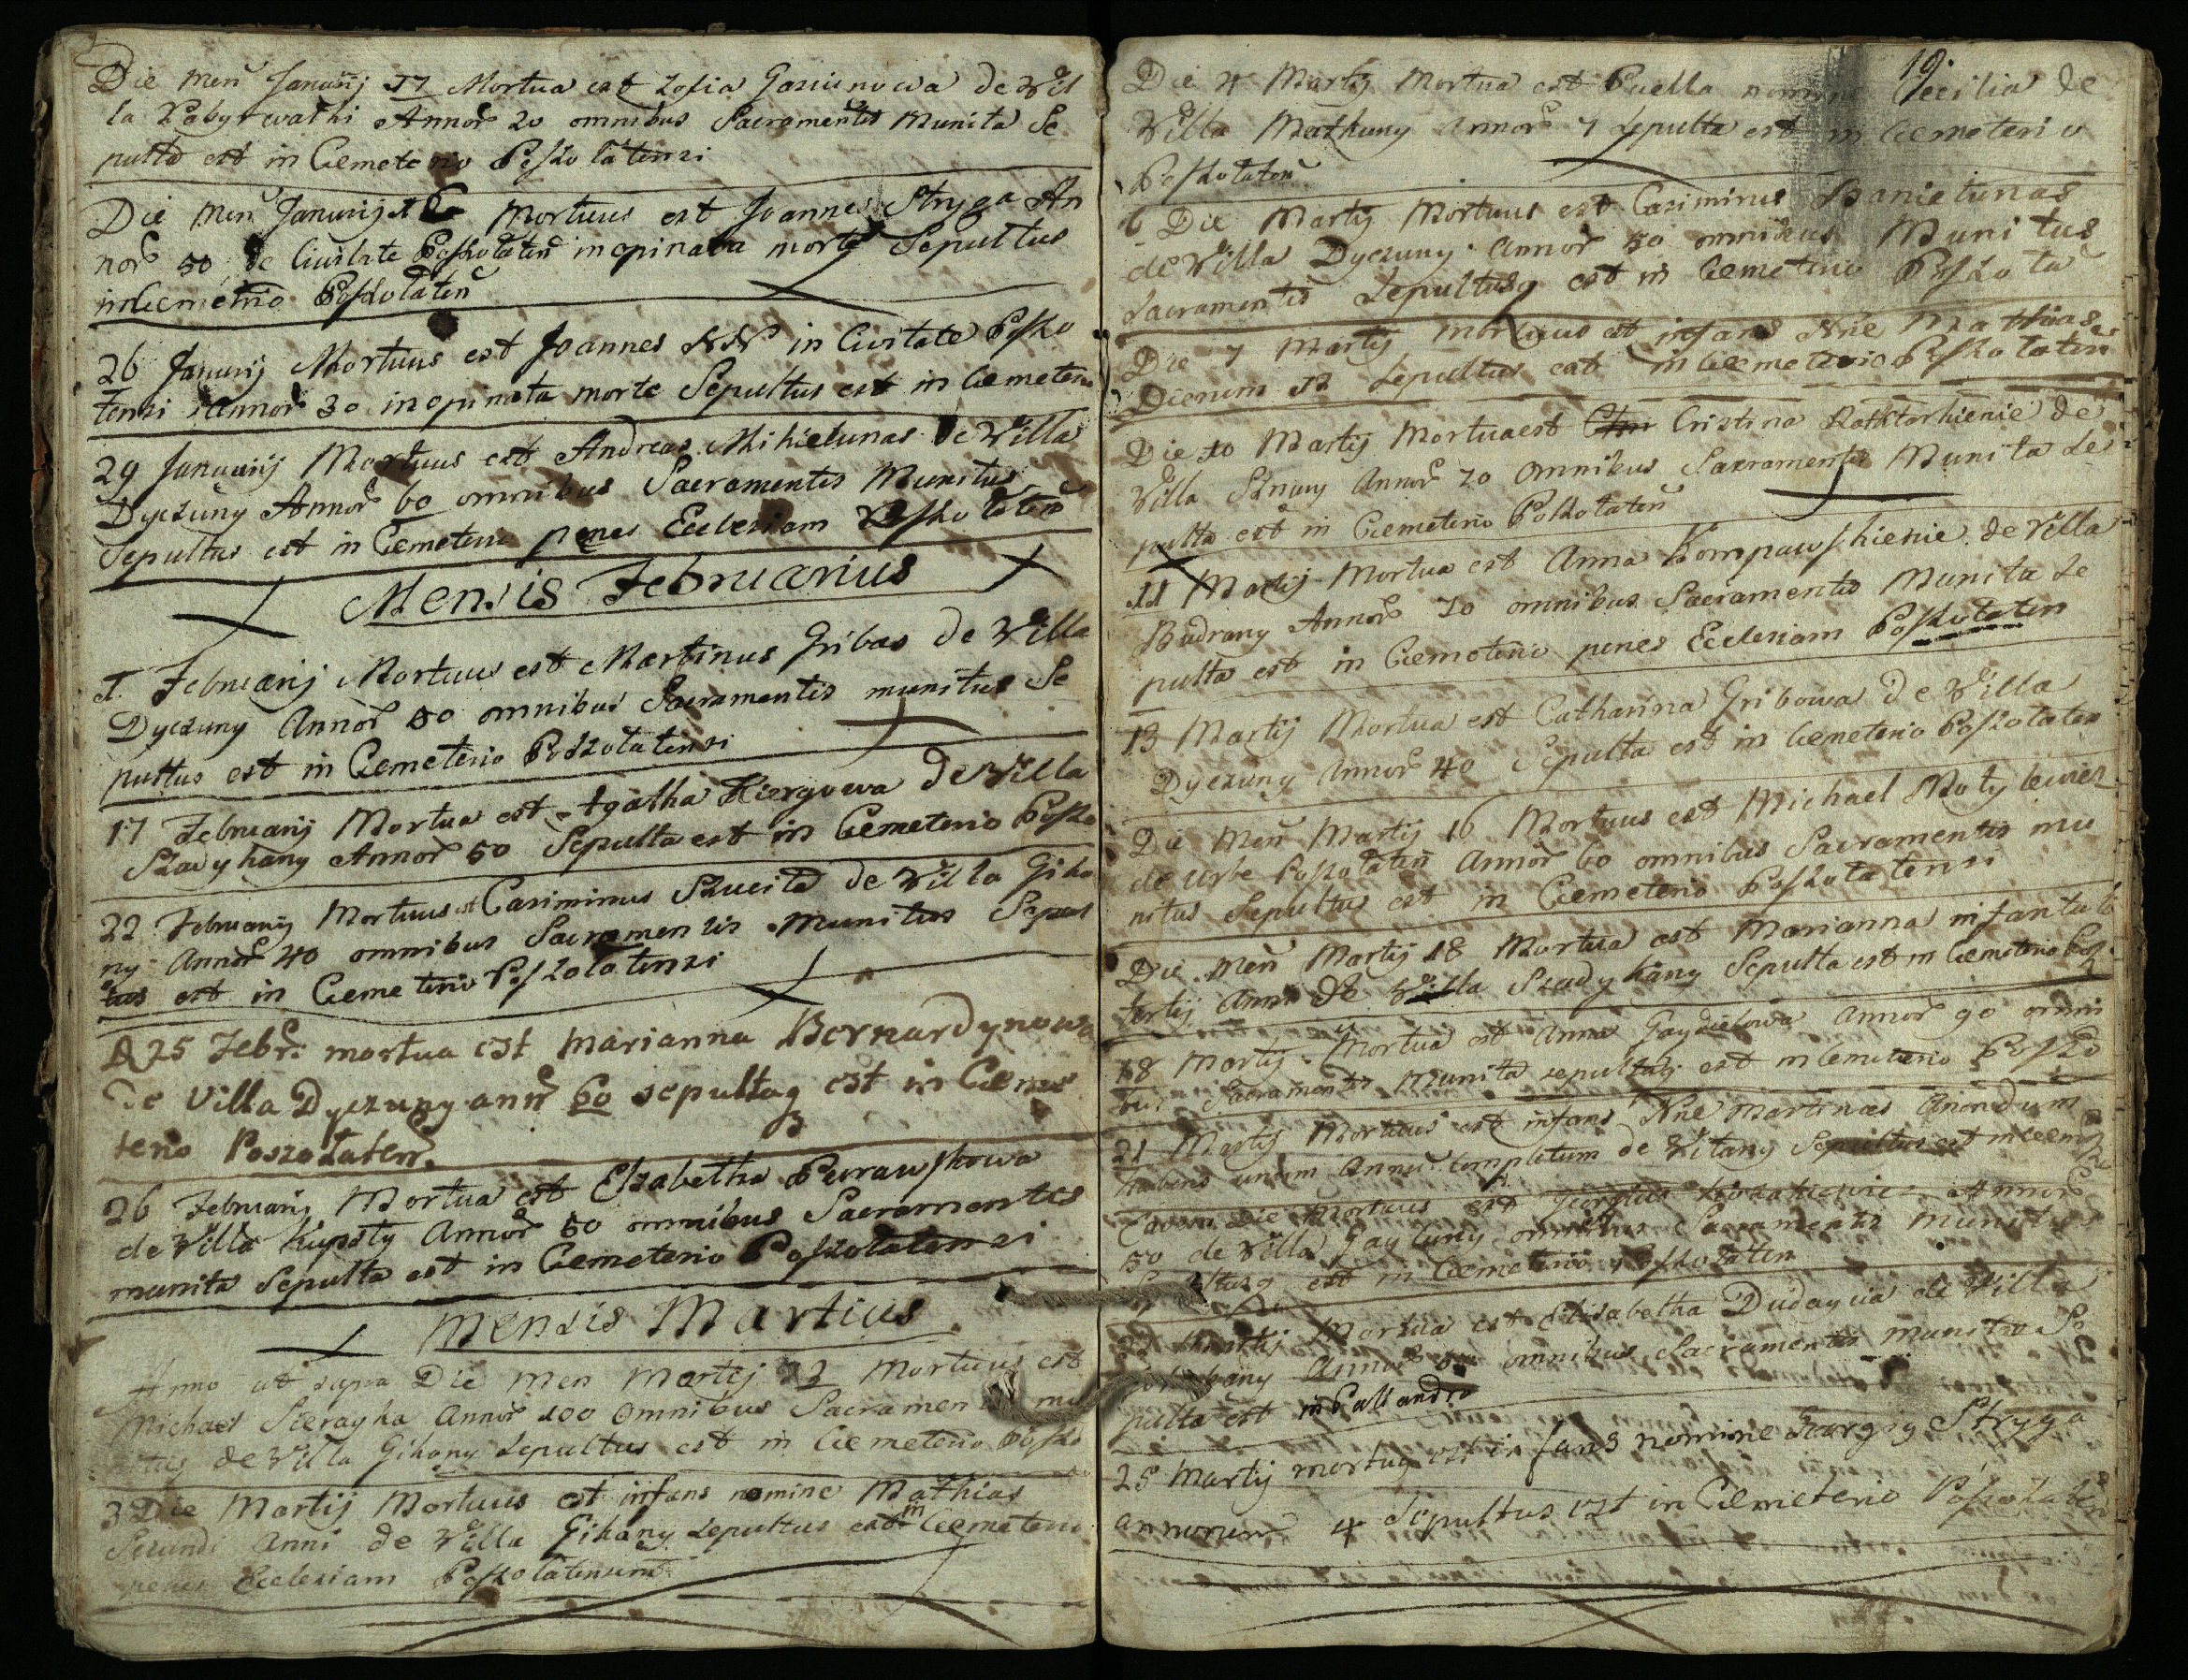 Die Meñ Januarij 17 Mortua est Zofia Gasiunowa de Vil
la Pabyrwałki Annor̃ 20 omnibus Sacramentis Munita Se
pulta est in Cemeterio Poszołatensi
Die Meñ Januarij Mortuus est Joannes Stryga An
nor̃ 50 de Civitate Poszołateñ inopinata morte Sepultus
in Cemeterio Poszołateñ
26 Januarij Mortuus est Joannes NN in Civitate Poszo
tensi Annor̃ 30 inopinata morte Sepultus est in Cemeterio
29 Januarij Mortuus est Andreas Mikielunas de Villa
Dyczuny Annor̃ 60 omnibus Sacramentis Munitus
Sepultus est in Cemeterio penes Eclesiam Poszołateñ
Mensis Februarius
1 Februarij Mortuus est Martinus Gribas de Villa
Dyczuny Annor̃ 50 omnibus Sacramentis munitus Se
pultus est in Cemeterio Poszołatensi
17 Februarij Mortua est Agatha Kiergowa de Villa
Szadykany Annor̃ 50 Sepulta est in Cemeterio Poszo
22 Februarij Mortuus est Casimirus Szucita de Villa Gika
ny Annor̃ 40 omnibus Sacramentis Munitus Sepul
tus est in Cemeterio Poszołatensi
D 25 Febr: mortua est Marianna Bernardynowa
De Villa Dyczuny anñ 60 sepultaq est in Ceme
terio Poszołateñ.
26 Februarij Mortua est Elzabetha Purawskowa
de Villa Kupsty Annor̃ 50 omnibus Sacramentis
munita Sepulta est in Cemeterio Poszołatensi
Mensis Martius
Anno ut supra Die Men Martij Mortuus est
Michael Szerayka Annor̃ 100 Omnibus Sacramentis mu
nitus de Villa Gikany Sepultus est in Cemeterio Poszo
3 Die Martij Mortuus est infans nomine Mathias
Secundi Anni de Villa Gikany Sepultus est in Cemeterio
penes Eclesiam Poszołatensem
19.
Die 4 Martij Mortua est Puella nomine Cecilia de
Villa Matkuny Annor̃ 7 Sepulta est in Cemeterio
Poszołateñ
6 Die Martij Mortuus est Casimirus Banielunas
de Villa Dyczuny Annor̃ 50 omnibus Munitus
Sacramentis Sepultusq est in Cemeterio Poszoła
Die 7 Martij mortuus est infans Nñe Mathias
Dierum 12 Sepultus est in Cemeterio Poszołateñ
Die 10 Martij Mortua est Cristina Rathtorkienie de
Villa Annor̃ 20 Omnibus Sacramentis Munita Se
pulta est in Cemeterio Poszołateñ
11 Martij Mortua est Anna Kompawskienie de Villa
Budrany Annor̃ 70 omnibus Sacramentis Munita Se
pulta est in Cemeterio penes Eclesiam Poszołaten
13 Martij Mortua est Catharina Gribowa de Villa
Dyczuny Annor̃ 40 Sepulta est in Cemeterio Poszołaten
Die Meñ Martij 16 Mortuus est Michael Motylewicz
de Urbe Poszołateñ Annor̃ 60 omnibus Sacramentis mu
nitus Sepultus est in Cemeterio Poszołatensi
Die Meñ Martij 18 Mortua est Marianna infantula
tertij Anni de Villa Szadykany Sepulta est in Cemeterio Posz
18 Martij Mortua est Anna Gaydielowa Annor̃ 90 omni
bus Sacramentis Munita sepultaq est in Cemeterio Poszo
21 Martij Mortuus est infans Nñe Martinus
habens unum Annum Completum de Vitany Sepultus est in Cem
Eadem Die Mortuus est Georgius Annor̃
50 de Villa Gaytuny omnibus Sacramentis Munitus
Sepultusq est in Cemeterio Poszołaten
Martij Mortua est Elisabetha Dudaycia de Villa
Annor̃ omnibus Sacramentis munita Se
pulta est in
25 Martij mortuq est infans nomine Georgig Stryga
annorum 4 Sepultus est in Cemeterio Poszołateñ